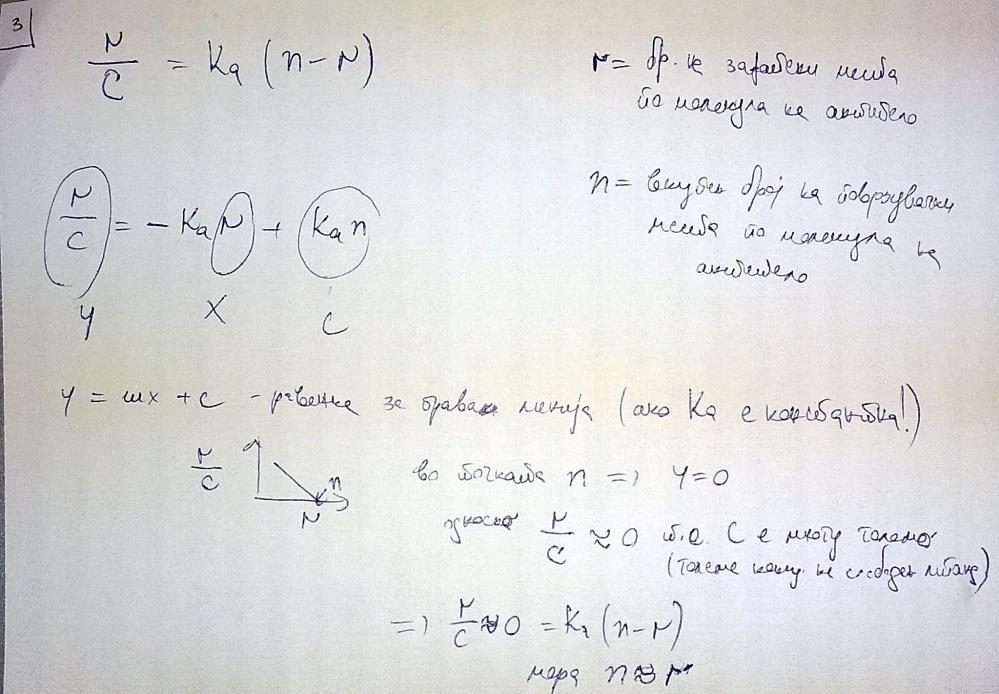 3
r/c = Ka (n - r)
r = бр. на зафатени места
по молекула на антитело
r/c = - Ka r + Ka n
y x c
n = вкупен број на поврзувачки
места по молекула на
антитело
y = mx + c - равенка за права линија (ако Ka е константа!)
r/c
n
r
во точката n => y = 0
односно r/c ≈ 0 т.е. C е многу големо
(големе конц. на слободен лиганд)
=> r/c ≈ 0 = Ka (n - r)
мора n ≈ r